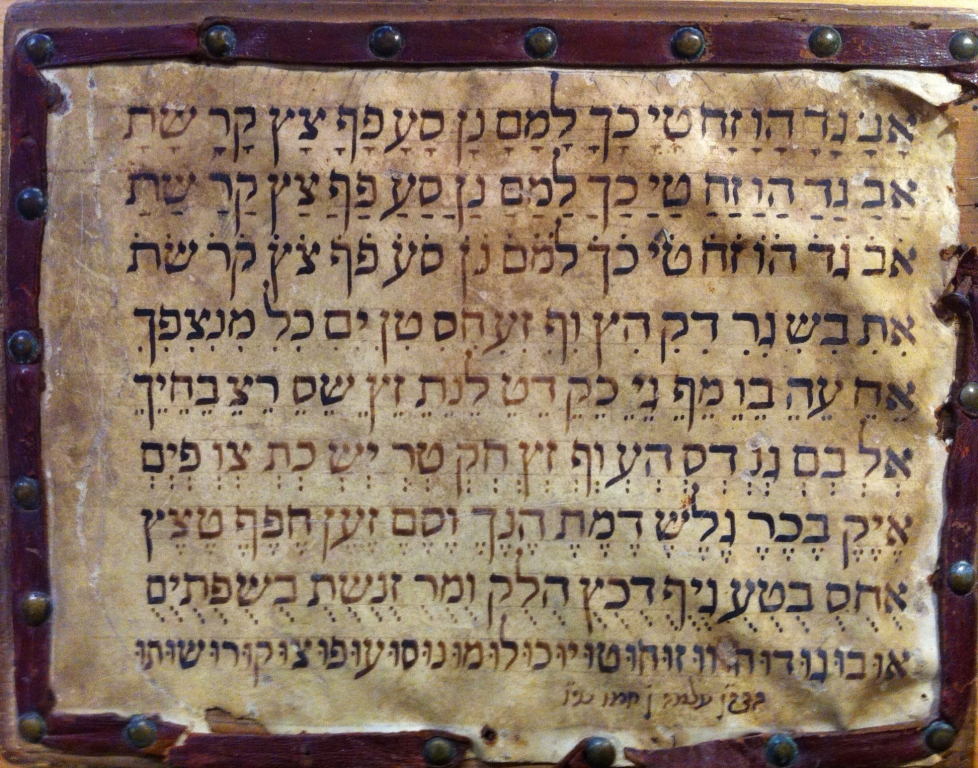 אָבָ גָדָ הָוָ זָחָ טָיָ כָךָ לָמָםָ נָןָ סָעָ פָףָ צָץָ קָרָ שָתָ
אַבַ גַדַ הַוַ זַחַ טַיַ כַךַ לַמַםַ נַןַ סַעַ פַףַ צַץַ קַרַ שַתַ
אֹבֹ גֹדֹ הֹוֹ זֹחֹ טֹיֹ כֹךֹ לֹמֹםֹ נֹןֹ סֹעֹ פֹףֹ צֹץֹ קֹרֹ שֹתֹ
אִתִ בִשִ גִרִ דִקִ הִץִ וִףִ זִעִ חִסִ טִןִ יִםִ כִלִ מִנִצִפִךִ
אֵחֵ עֵהֵ בֵוֵ מֵףֵ גֵיֵ כֵקֵ דֵטֵ לֵנֵתֵ זֵץֵ שֵסֵ רֵצֵ בֵחֵיֵךֵ
אְלְ בְםְ גְנְ דְסְ הְעְ וְףְ זְץְ חְקְ טְרְ יְשְ כְתְ צְוְ פְיְםְ
אֶיֶקֶ בֶכֶרֶ גֶלֶשֶ דֶמֶתֶ הֶנֶךֶ וֶסֶםֶ זֶעֶןֶ חֶפֶףֶ טֶצֶץֶ
אֻחֻסֻ בֻטֻעֻ גֻיֻףֻ דֻכֻץֻ הֻלֻקֻ וֻמֻרֻ זֻנֻשֻתֻ בֻשֻפֻתֻיֻםֻ
אוּבוּגוּדוּהוּווּזוּחוּטוּיוּכוּלוּמוּנוּסוּעוּפוּצוּקוּרוּשוּתוּ